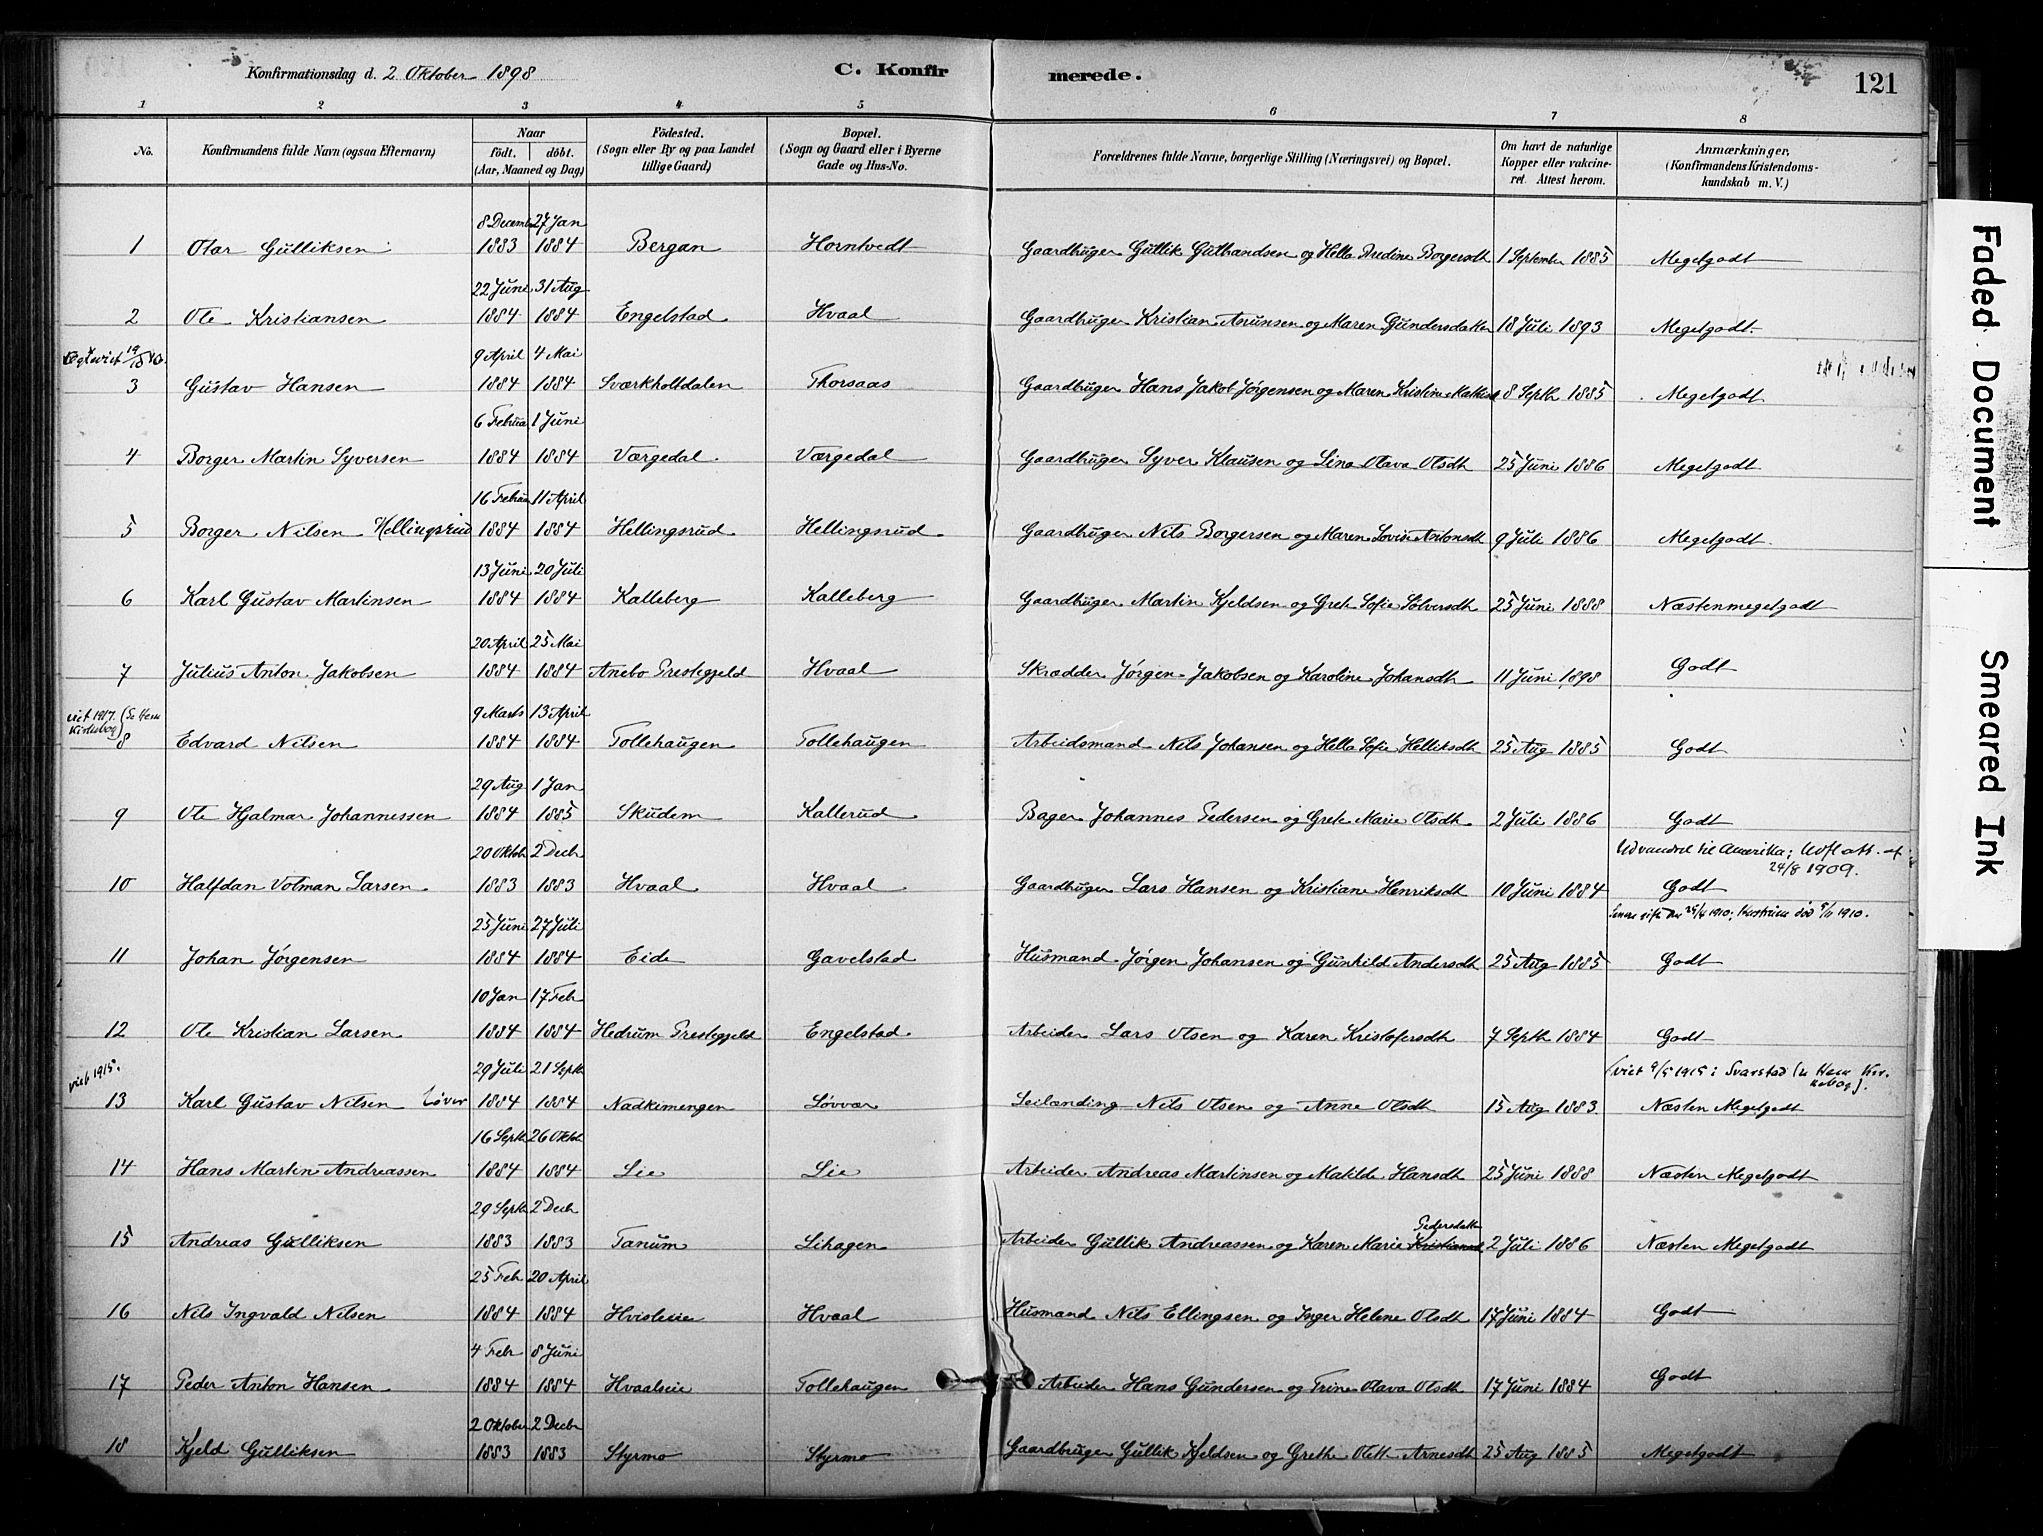 Konfirmationsdag d. 2 Oktober 1898 C. Konfirmerede. 121
1 2 3 4 5 6 7 8
No. Konfirmandens fulde Navn (ogsaa Efternavn) Naar födt. döbt. (Aar, Maaned og Dag) Födested. (Sogn eller By og paa Landet tillige Gaard) Bopæl. (Sogn og Gaard eller i Byerne Gade og Hus-No. Forældrenes fulde Navne, borgerlige Stilling (Næringsvei) og Bopæl. Om havt de naturlige Kopper eller vakcineret. Attest herom. Anmærkninger, (Konfirmandens Kristendomskundskab m. V.)
8 Decemb 27 Jan
1 Olar Gulliksen 1883 1884 Bergan Horntvedt Gaardbruger Gullik Gulbrandsen og Helle Andine Borgersdt 1 September 1885 Megetgodt
22 Juni 31 Aug
2 Ole Kristiansen 1884 1884 Engelstad Hvaal Gaardbruger Kristian Asrunsen og Maren Gundersdatter 18 Juli 1893 Megetgodt
9 April 4 Mai
3 Gustav Hansen 1884 1884 Sværkholtdalen Thorsaas Gaardbruger Hans Jakob Jørgensen og Maren Kristine Mathisd 8 Septb 1885 Megetgodt
6 Februa 1 Juni
4 Borger Martin Syversen 1884 1884 Værgedal Værgedal Gaardbruger Syver Klausen og Lina Olava Olsdt 25 Juni 1886 Megetgodt
16 Februa 11 April
5 Borger Nilsen Hellingsrud 1884 1884 Hellingsrud Hellingsrud Gaardbruger Nils Borgersen og Maren Lovise Antonsdt 9 Juli 1886 Megetgodt
13 Juni 20 Juli
6 Karl Gustav Martinsen 1884 1884 Kalleberg Kalleberg Gaardbruger Martin Kjeldsen og Grete Sofie Sølversdt 25 Juni 1888 Næstenmegetgodt
20 April 25 Mai
7 Julius Anton Jakobsen 1884 1884 Anebo Prestegjeld Hvaal Skrædder Jørgen Jakobsen og Karoline Johansdt 11 Juni 1898 Godt
viet 1917. (Se Hem Kirkebog) 9 Marts 13 April
8 Edvard Nilsen 1884 1884 Tollehaugen Tollehaugen Arbeidsmand Nils Johansen og Helle Sofie Helliksdt 25 Aug 1885 Godt
29 Aug 1 Jan
9 Ole Hjalmar Johannessen 1884 1885 Skudem Kallerud Bager Johannes Pedersen og Grete Marie Olsdt 2 Juli 1886 Godt
20 Oktob 2 Decb Udvandret til Amerika; Udfl att. af 24/8 1909.
10 Halfdan Volman Larsen 1883 1883 Hvaal Hvaal Gaardbruger Lars Hansen og Kristiane Henriksdt 10 Juni 1884 Godt
25 Juni 27 Juli
11 Johan Jørgensen 1884 1884 Eide Gavelstad Husmand Jørgen Johansen og Gunhild Andersdt 25 Aug 1885 Godt
10 Jan 17 Feb
12 Ole Kristian Larsen 1884 1884 Hedrum Prestegjeld Engelstad Arbeider Lars Olsen og Karen Kristofersdt 7 Septb 1884 Godt
viet 1915. 29 Juli 21 Septb (viet 9/5 1915 i Svarstad (se Hem Kirkebog).
13 Karl Gustav Nilsen Løver 1884 1884 Nadkimengen Løvvar Leilænding Nils Olsen og Anne Olsdt 15 Aug 1883 Næsten Megetgodt
16 Septb 26 Oktob
14 Hans Martin Andreassen 1884 1884 Lie Lie Arbeider Andreas Martinsen og Matilde Hansdt 25 Juni 1888 Næsten Megetgodt
29 Septb 2 Decb Pedersdatter
15 Andreas Gulliksen 1883 1883 Tanum Lihagen Arbeider Gullik Andreassen og Karen Marie Kristiansd 2 Juli 1886 Næsten Megetgodt
25 Feb 20 April
16 Nils Ingvald Nilsen 1884 1884 Hvisteie Hvaal Husmand Nils Ellingsen og Inger Helene Olsdt 17 Juni 1884 Godt
4 Febr 8 Juni
17 Peder Anton Hansen 1884 1884 Hvaalseie Tollehaugen Arbeider Hans Gundersen og Trine Olava Olsdt 17 Juni 1884 Godt
2 Oktober 2 Decbr
18 Kjeld Gulliksen 1883 1883 Styrmo Styrmo Gaardbruger Gullik Kjeldsen og Grethe Olette Arnesdt 25 Aug 1885 Megetgodt
Faded Document
Smeared Ink